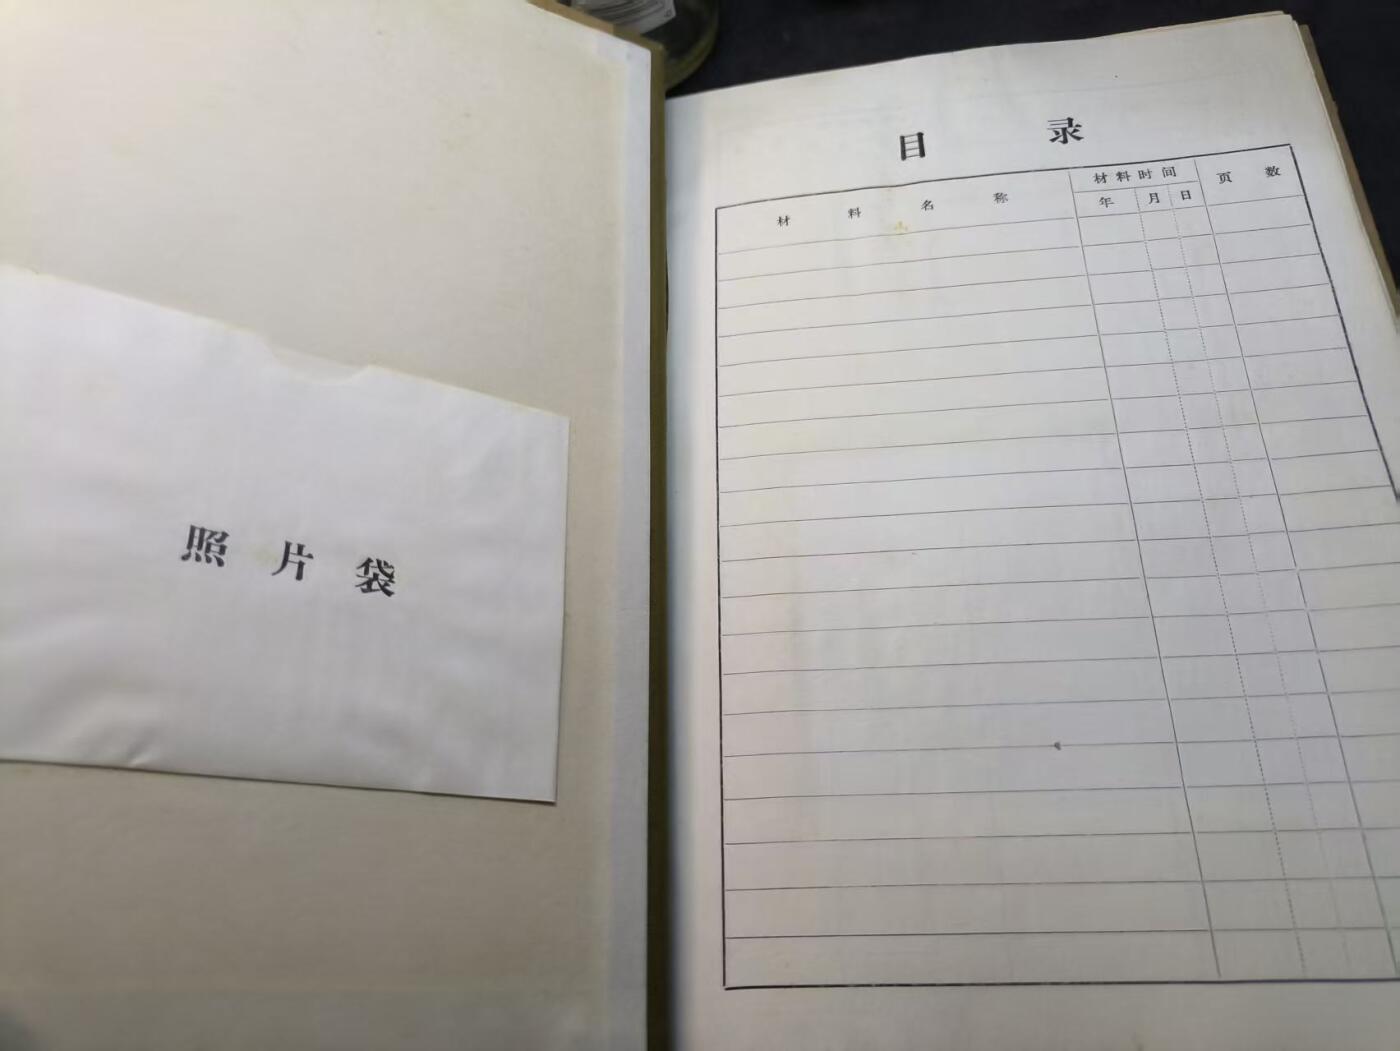 照片袋
目录
材料名称 材料时间 页数
年 月 日